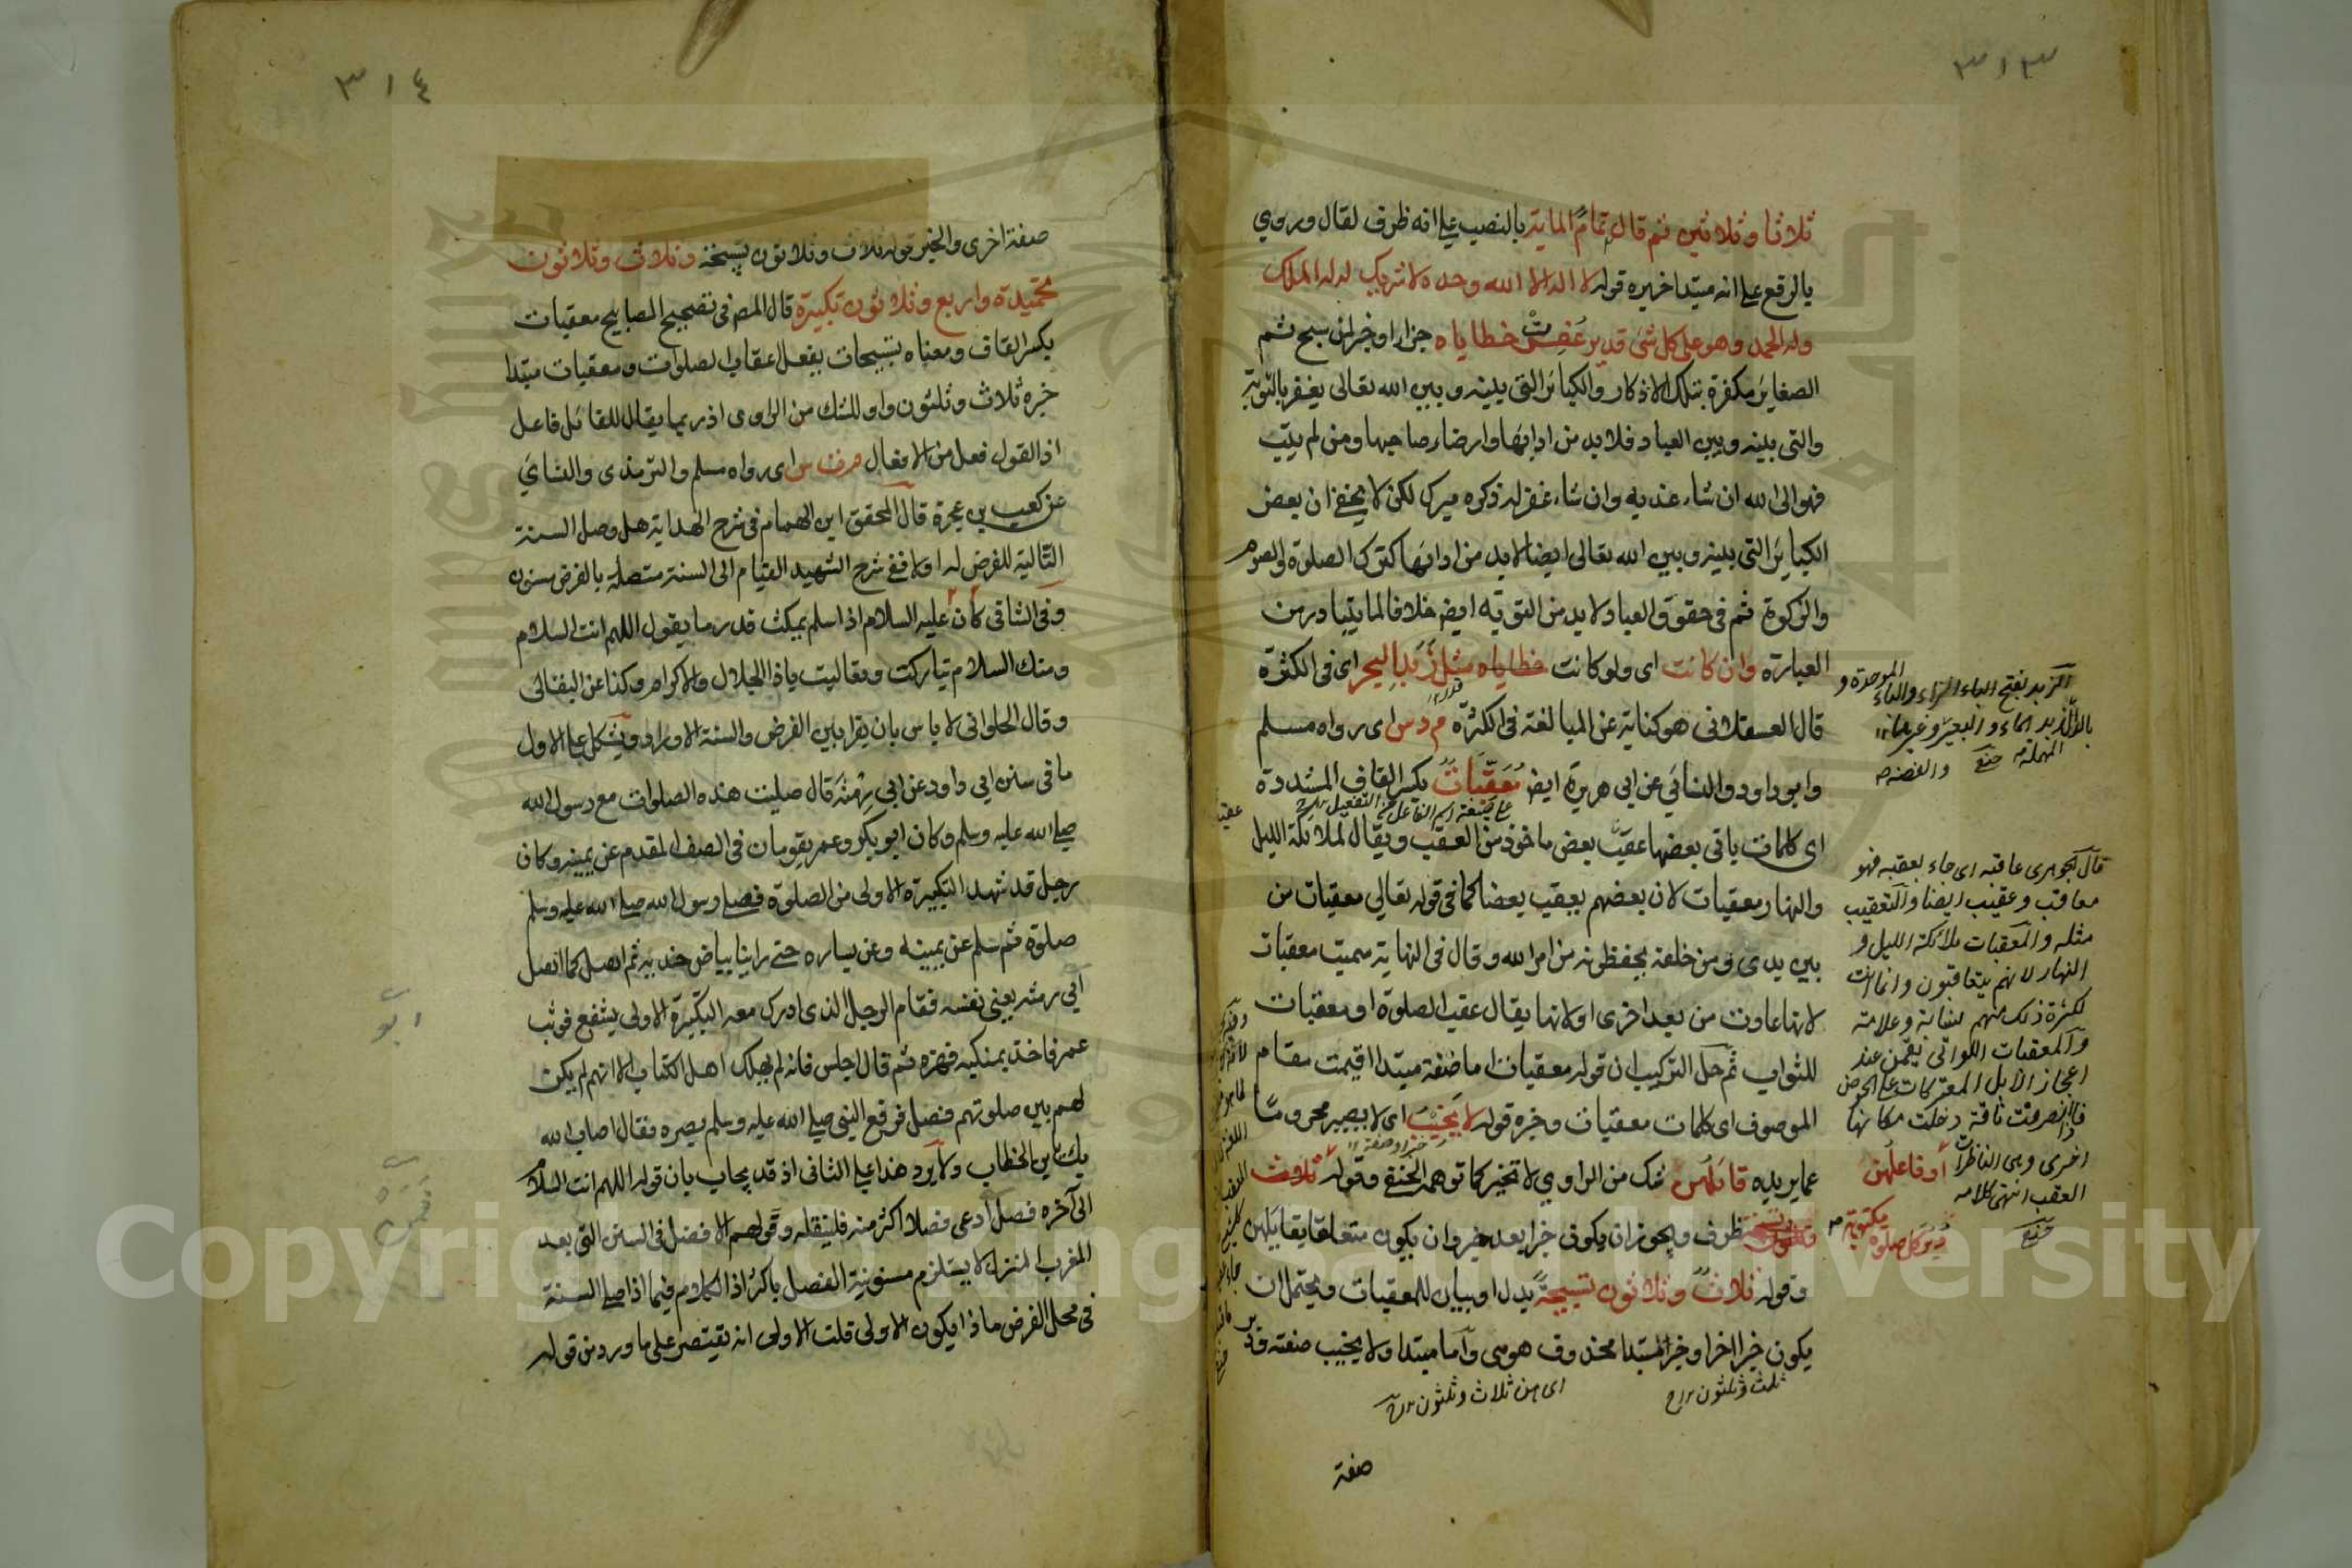 ٣١٣
ثلاثا وثلاثين ثم قال تمام الماية بالنصب على انه ظرف لقال وروي
بالرفع على انه مبتدا خبره قوله لا اله الا الله وحده لا شريك له له الملك
وله الحمد وهو على كل شئ قدير غفرت خطاياه جزاء او خبر لمن سبح ثم
الصغاير مكفرة بتلك الاذكار والكباير التى بينه وبين الله تعالى يغفر بالتوبة
والتى بينه وبين العباد فلا بد من ادايها وارضاء صاحبها ومن لم يتب
فهو الى الله ان شاء عذبه وان شاء غفر له ذكره ميرك لكن لا يخفى ان بعض
الكباير التى بينه وبين الله تعالى ايضا لا بد من ادايها كترك الصلوة والصوم
والزكوة ثم فى حقوق العباد لا بد من التوبة ايض خلافا لما يتبادر من
العبارة وان كانت اى ولو كانت خطاياه مثل زبد البحر اى فى الكثرة
قال العسقلانى هو كناية عن المبالغة فى الكثرة م د س اى رواه مسلم
وابو داود والنسائي عن ابى هريرة ايض معقبات بكسر القاف المشددة
على صيغة اسم الفاعل من التفعيل
اى كلمات ياتى بعضها عقيب بعض ماخوذ من العقب ويقال لملائكة الليل
والنهار معقبات لان بعضهم يعقب بعضا كما فى قوله تعالي معقبات من
بين يديه ومن خلفه يحفظونه من امر الله وقال فى النهاية سميت معقبات
لانها عادت من بعد اخرى او لانها يقال عقيب الصلوة او معقبات
للثواب ثم حل التركيب ان قوله معقبات اما صفة مبتدا اقيمت مقام
الموصوف اى كلمات معقبات وخبره قوله لا يخيب اى لا يصير محروما
خبر او صفة
عما يريده قائلهن شك من الراوي لا تخيير كما توهمه الحنفي وقوله ثلاث
ظرف ويجوز ان يكون خبرا بعد خبر وان يكون متعلقا بقايلهن
وقوله ثلاث وثلاثون تسبيحة بدل او بيان للمعقبات ويحتمل ان
يكون خبرا اخر او خبر المبتدا محذوف هو هى واما مبتدا ولا يخيب صفته
ثلث وثلثون
اى هن ثلاث وثلثون
صفة
الزبد بفتح الزاء والباء الموحدة و
قال الجوهرى عاقبه اى جاء بعقبه فهو
معاقب وعقيب ايضا والتعقيب
مثله والمعقبات ملائكة الليل و
النهار لانهم يتعاقبون وانما انث
لكثرة ذلك منهم كنسابة وعلامة
والمعقبات اللواتى يقمن عند
اعجاز الابل المعتركات على الحوض
فاذا انصرفت ناقة دخلت مكانها
اخرى وهى الناظرات
العقب انتهى كلامه
او فاعلهن
دبر كل صلوة مكتوبة
٣١٤
صفة اخرى والخبر قوله ثلاث وثلاثون تسبيحة وثلاث وثلاثون
تحميدة واربع وثلاثون تكبيرة قال المص فى تصحيح المصابيح معقبات
بكسر القاف ومعناه تسبيحات يفعل اعقاب الصلوات ومعقبات مبتدا
خبره ثلاث وثلثون واو للشك من الراوى اذ ربما يقال للقائل فاعل
اذ القول فعل من الافعال م ت س اى رواه مسلم والترمذى والنسائي
عن كعب بن عجرة قال المحقق ابن الهمام فى شرح الهداية هل وصل السنة
التالية للفرض له اولا ففى شرح الشهيد القيام الى السنة متصلة بالفرض مسنون
وفى الشافى كان عليه السلام اذا سلم يمكث قدر ما يقول اللهم انت السلام
ومنك السلام تباركت وتعاليت ياذا الجلال والاكرام وكذا عن البقالى
وقال الحلوانى لا باس بان يقرا بين الفرض والسنة الاوراد ويشكل على الاول
ما فى سنن ابى داود عن ابى رمثة قال صليت هذه الصلوات مع رسول الله
صلى الله عليه وسلم وكان ابو بكر وعمر يقومان فى الصف المقدم عن يمينه وكان
رجل قد شهد التكبيرة الاولى من الصلوة فصلى رسول الله صلى الله عليه وسلم
صلوة ثم سلم عن يمينه وعن يساره حتى راينا بياض خديه ثم انفتل كما انفتل
ابى رمثه يعنى نفسه فقام الرجل الذى ادرك معه التكبيرة الاولى يشفع فوثب
عمر فاخذ بمنكبيه فهزه ثم قال اجلس فانه لم يهلك اهل الكتاب الا انهم لم يكن
لهم بين صلوتهم فصل فرفع النبى صلى الله عليه وسلم بصره فقال اصاب الله
بك يا ابن الخطاب ولا يرد هذا على الثانى اذ قد يجاب بان قوله اللهم انت السلام
الى آخره فصل ادعى فصلا اكثر منه فلينقله وقولهم الافضل فى السنن التى بعد
المغرب المنزل لا يستلزم مسنونية الفصل باكثر اذ الكلام فيما اذا صلى السنة
فى محل الفرض ماذا يكون الاولى قلت الاولى انه يقتصر على ما ورد من قوله
ابو
Copyright © King Saud University